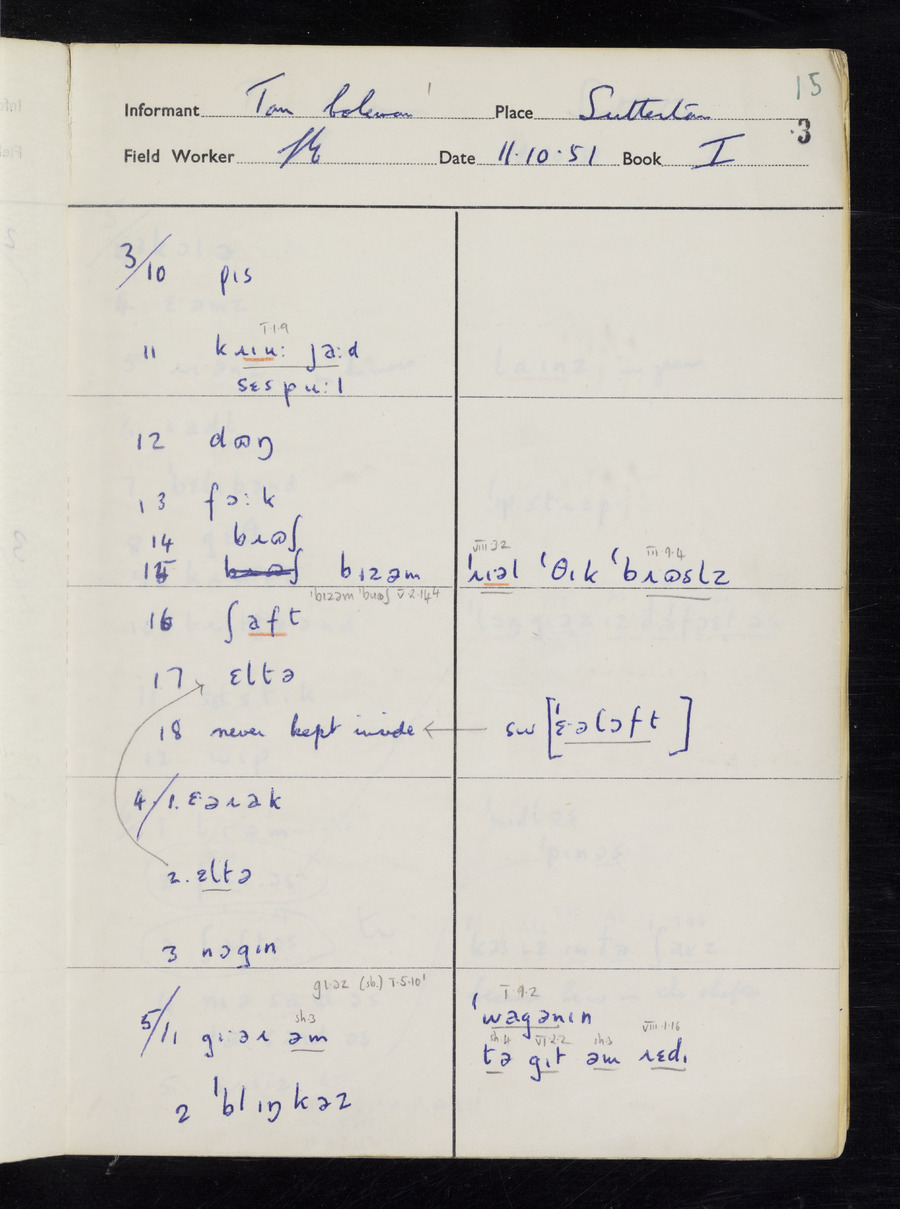 15
Informant Tom Coleman Place Sutterton
3
Field Worker Date 11·10·51 Book I
3/10 pɪs
I·1·9
11 kɹɪu: ja:d
sɛspu:l
12 dɷŋ
13 fɔ:k
14 bɹɷʃ
VIII·3·2 III·9·4
15 bɹɷʃ bɪzəm ˈɹɪəl ˈθɪk ˈbɹɷslz
ˈbɪzəm ˈbɹɷʃ V·2·14
16 ʃaft
17 ɛltə
18 never kept inside ← sw [ˈɛ·əlɔft]
4/1. ɛəɹək
2. ɛltə
3 nɔgɪn
gɪəz (sb.) I·5·10
I·9·2
ˈwagənɪn
sh·3
5/1 gɪ:əɹ əm
sh·4 VI·2·2 sh·3 VIII·1·16
tə gɪt əm ɹɛdɪ
2 ˈblɪŋkəz